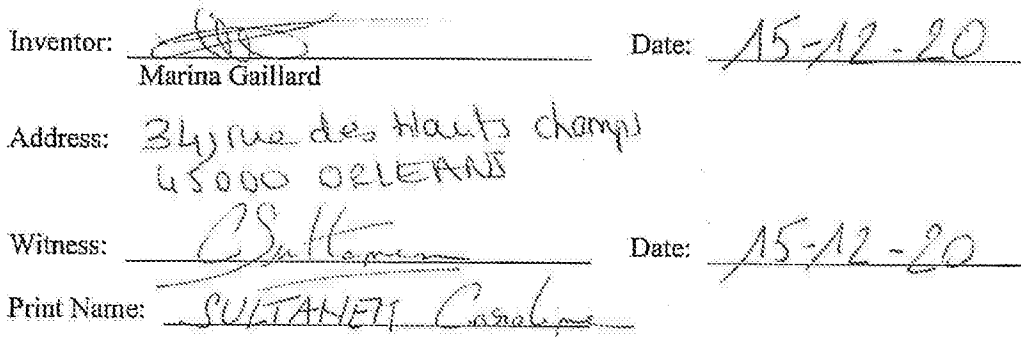 Inventor: Date: 15-12-20
Marina Gaillard
Address: 34, rue des Hauts champs
45000 ORLEANS
Witness: Date: 15-12-20
Print Name: Caroline